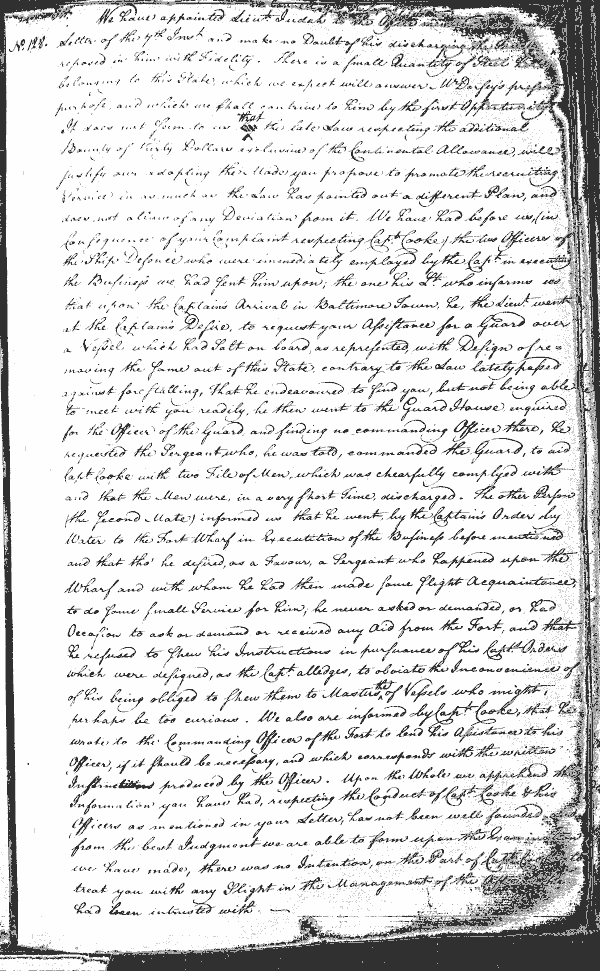 We have appointed Lieut. Judah to the Office
No. 128. Letter of the 7th Inst. and make no Doubt of his discharging the
reposed in him with Fidelity. There is a small Quantity of
belonging to this State, which we expect will answer Mr. Dorsey's present
purpose, and which we shall contrive to him by the first Opportunity.
It does not seem to us that the late Law respecting the additional
Bounty of thirty Dollars exclusive of the Continental Allowance, will
justify our adopting the Mode you propose to promote the recruiting
Service in as much as the Law has pointed out a different Plan, and
does not allow of any Deviation from it. We have had before us, (in
Consequence of your Complaint respecting Capt. Cooke) the two Officers of
the Ship Defence who were immediately employed by the Capt. in executing
the Business we had sent him upon; the one his Lt. who informs us
that upon the Captain's Arrival in Baltimore Town, he, the Lieut. went
at the Captain's Desire, to request your Assistance for a Guard over
a Vessel which had Salt on board, as represented, with Design of re=
moving the same out of this State, contrary to the Law lately passed
against forestalling, that he endeavoured to find you, but not being able
to meet with you readily, he then went to the Guard House enquired
for the Officer of the Guard and finding no commanding Officer there, he
requested the Sergeant who, he was told, commanded the Guard, to aid
Capt. Cooke with two File of Men, which was chearfully complyed with
and that the Men were, in a very short Time, discharged. The other Person
(the Second Mate) informed us that he went, by the Captain's Order by
Water to the Fort Wharf in Execution of the Business before mentioned
and that tho' he desired, as a Favour, a Sergeant who happened upon the
Wharf and with whom he had then made some slight Acquaintance,
to do some small Service for him, he never asked or demanded, or had
Occasion to ask or demand or received any Aid from the Fort, and that
he refused to shew his Instructions in pursuance of his Capt. Orders
which were designed, as the Capt. alledges, to obviate the Inconvenience of
of his being obliged to shew them to Masters the of Vessels who might,
perhaps be too curious. We also are informed by Capt. Cooke, that he
wrote to the Commanding Officer of the Fort to lend his Assistance to his
Officer, if it should be necessary, and which corresponds with the written
Instructions produced by the Officer. Upon the Whole we apprehend the
Information you have had, respecting the Conduct of Capt. Cooke & his
Officers as mentioned in your Letter, has not been well founded
from the best Judgment we are able to form upon the
we have made, there was no Intention, on the Part of Capt. to
treat you with any Slight in the Management of the
had been intrusted with.